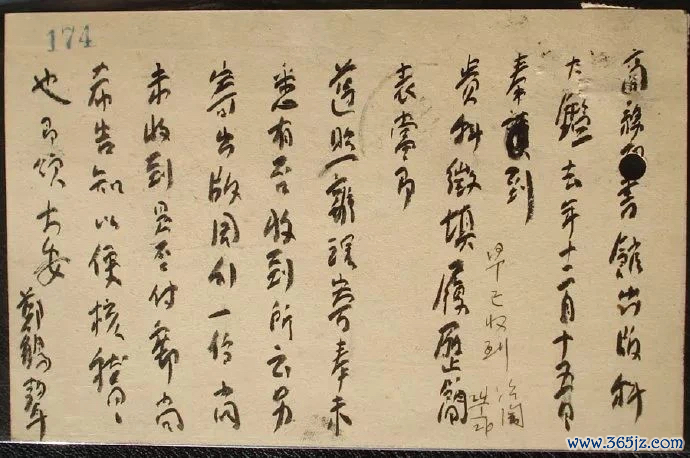 商務印書館出版科
大鑒去年十二月十五日
奉到
貴科徵填履歷簡
表當即
遵照辦理寄奉未
悉有否收到所云另
寄出版周刊一份尚
未收到是否付郵尚
希告知以便核
也即頌大安
鄭鶴聲
早已收到
174
www.365jz.com